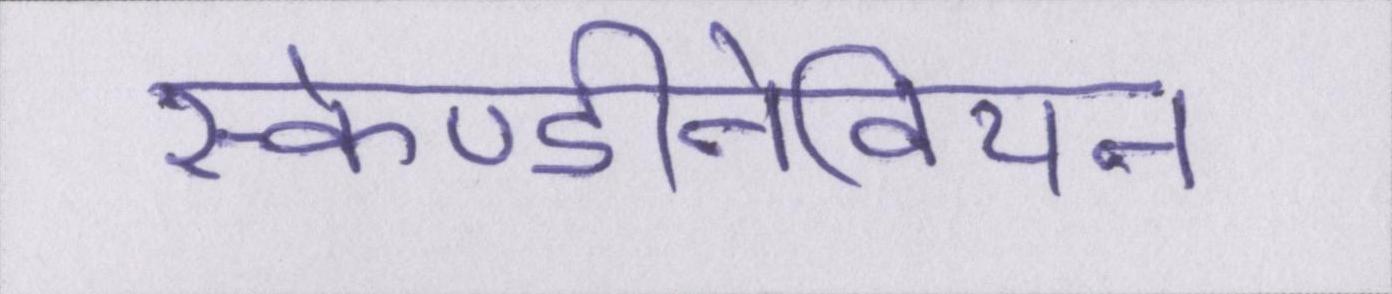 स्केण्डीनेवियन